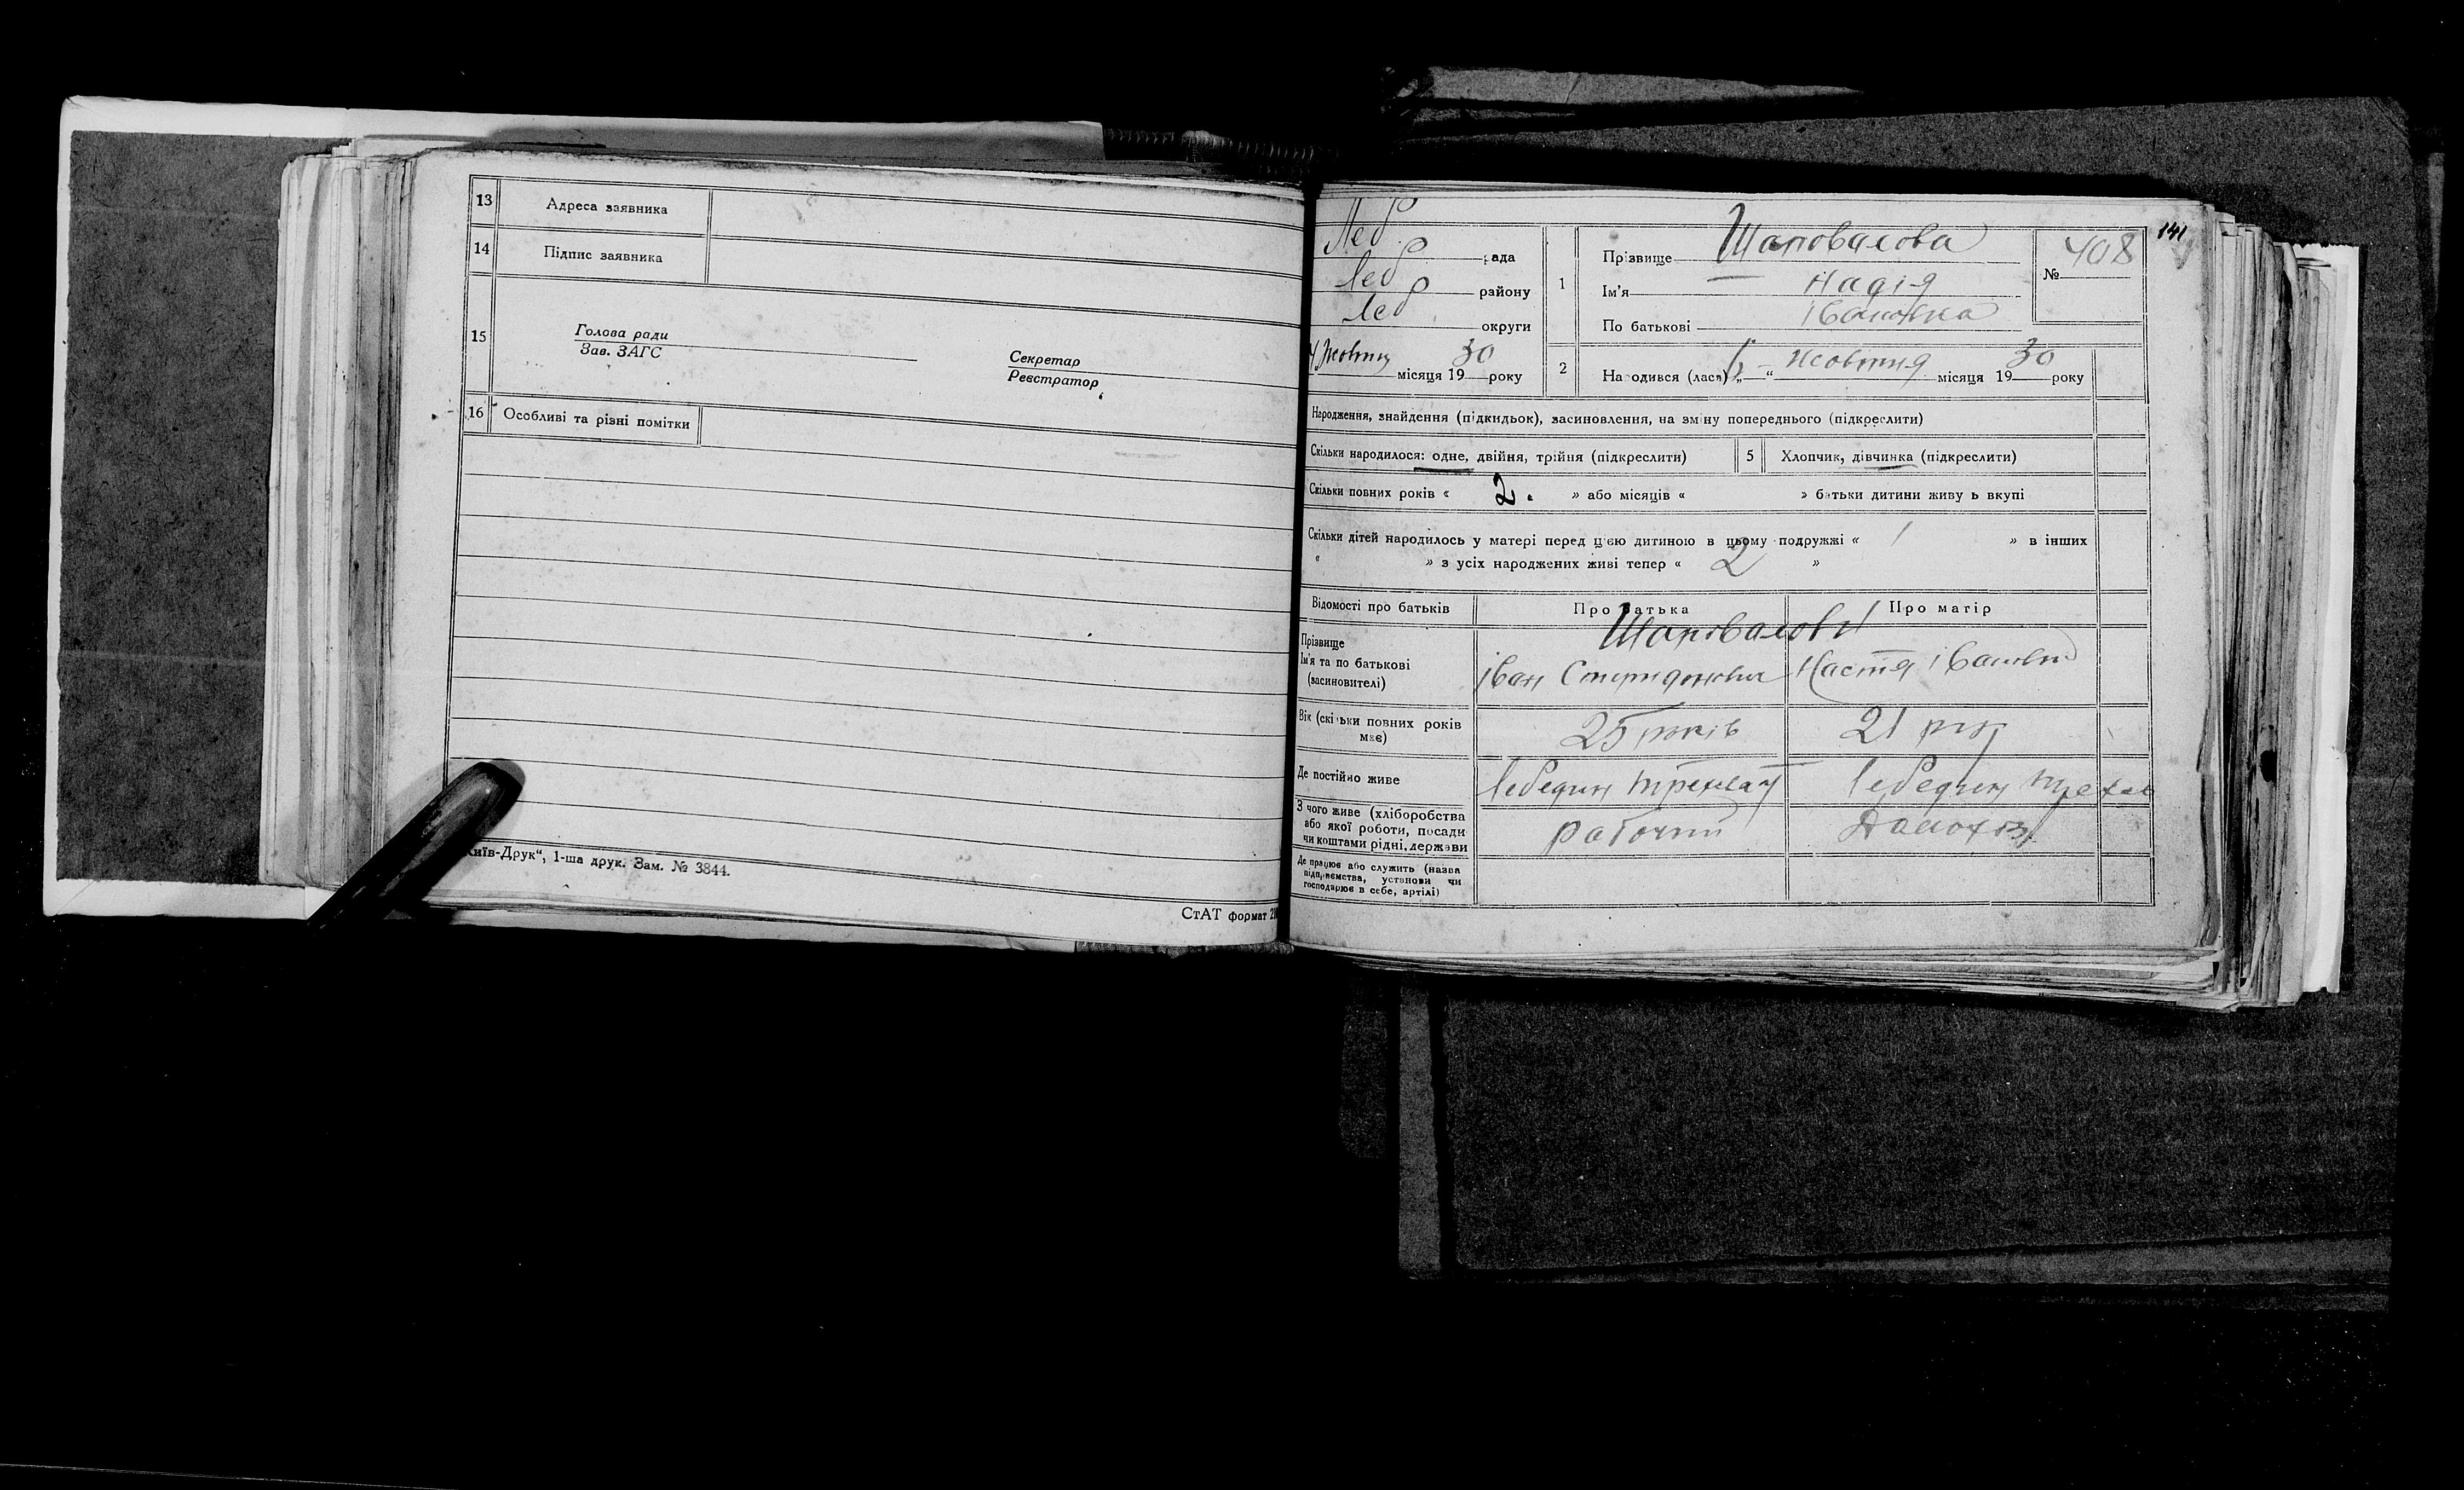 13 Адреса заявника
14 Підпис заявника
15 Голова ради
Зав. ЗАГС
Секретар
Реєстратор
16 Особливі та різні помітки
Київ-Друк“, 1-ша друк. Зам. № 3844.
СтАТ формат
141
Леб. рада
Леб районy
Леб. округи
Жовтня місяця 1930 року
1 Прізвище Шаповалова
Ім'я Надія
По батькові Івановна
№ 408
2 Народився (лась) „ “ Жовтня місяця 1930 року
Народження, знайдення (підкидьок), засиновлення, на зміну попереднього (підкреслити)
Скільки народилося: одне, двійня, трійня (підкреслити)
5 Хлопчик, дівчинка (підкреслити)
Скільки повних років « 2. » або місяців « » батьки дитини живу ь вкупі
Скільки дітей народилось у матері перед цією дитиною в цьому подружжі « 1 » в інших
« » з усіх народжених живі тепер « 2 »
Відомості про батьків Про батька Про матір
Прізвище Шаповалови
Ім'я та по батькові Іван Спиридонович Настя Івановн
(засиновителі)
Вік (скільки повних років має) 25 років 21 рік
Де постійно живе Лебедин Лебедин
З чого живе (хліборобства або якої роботи, посади чи коштами рідні, держави рабочий Домохоз.
Де працює або служить (назва підприємства, установи чи господарює в себе, артілі)